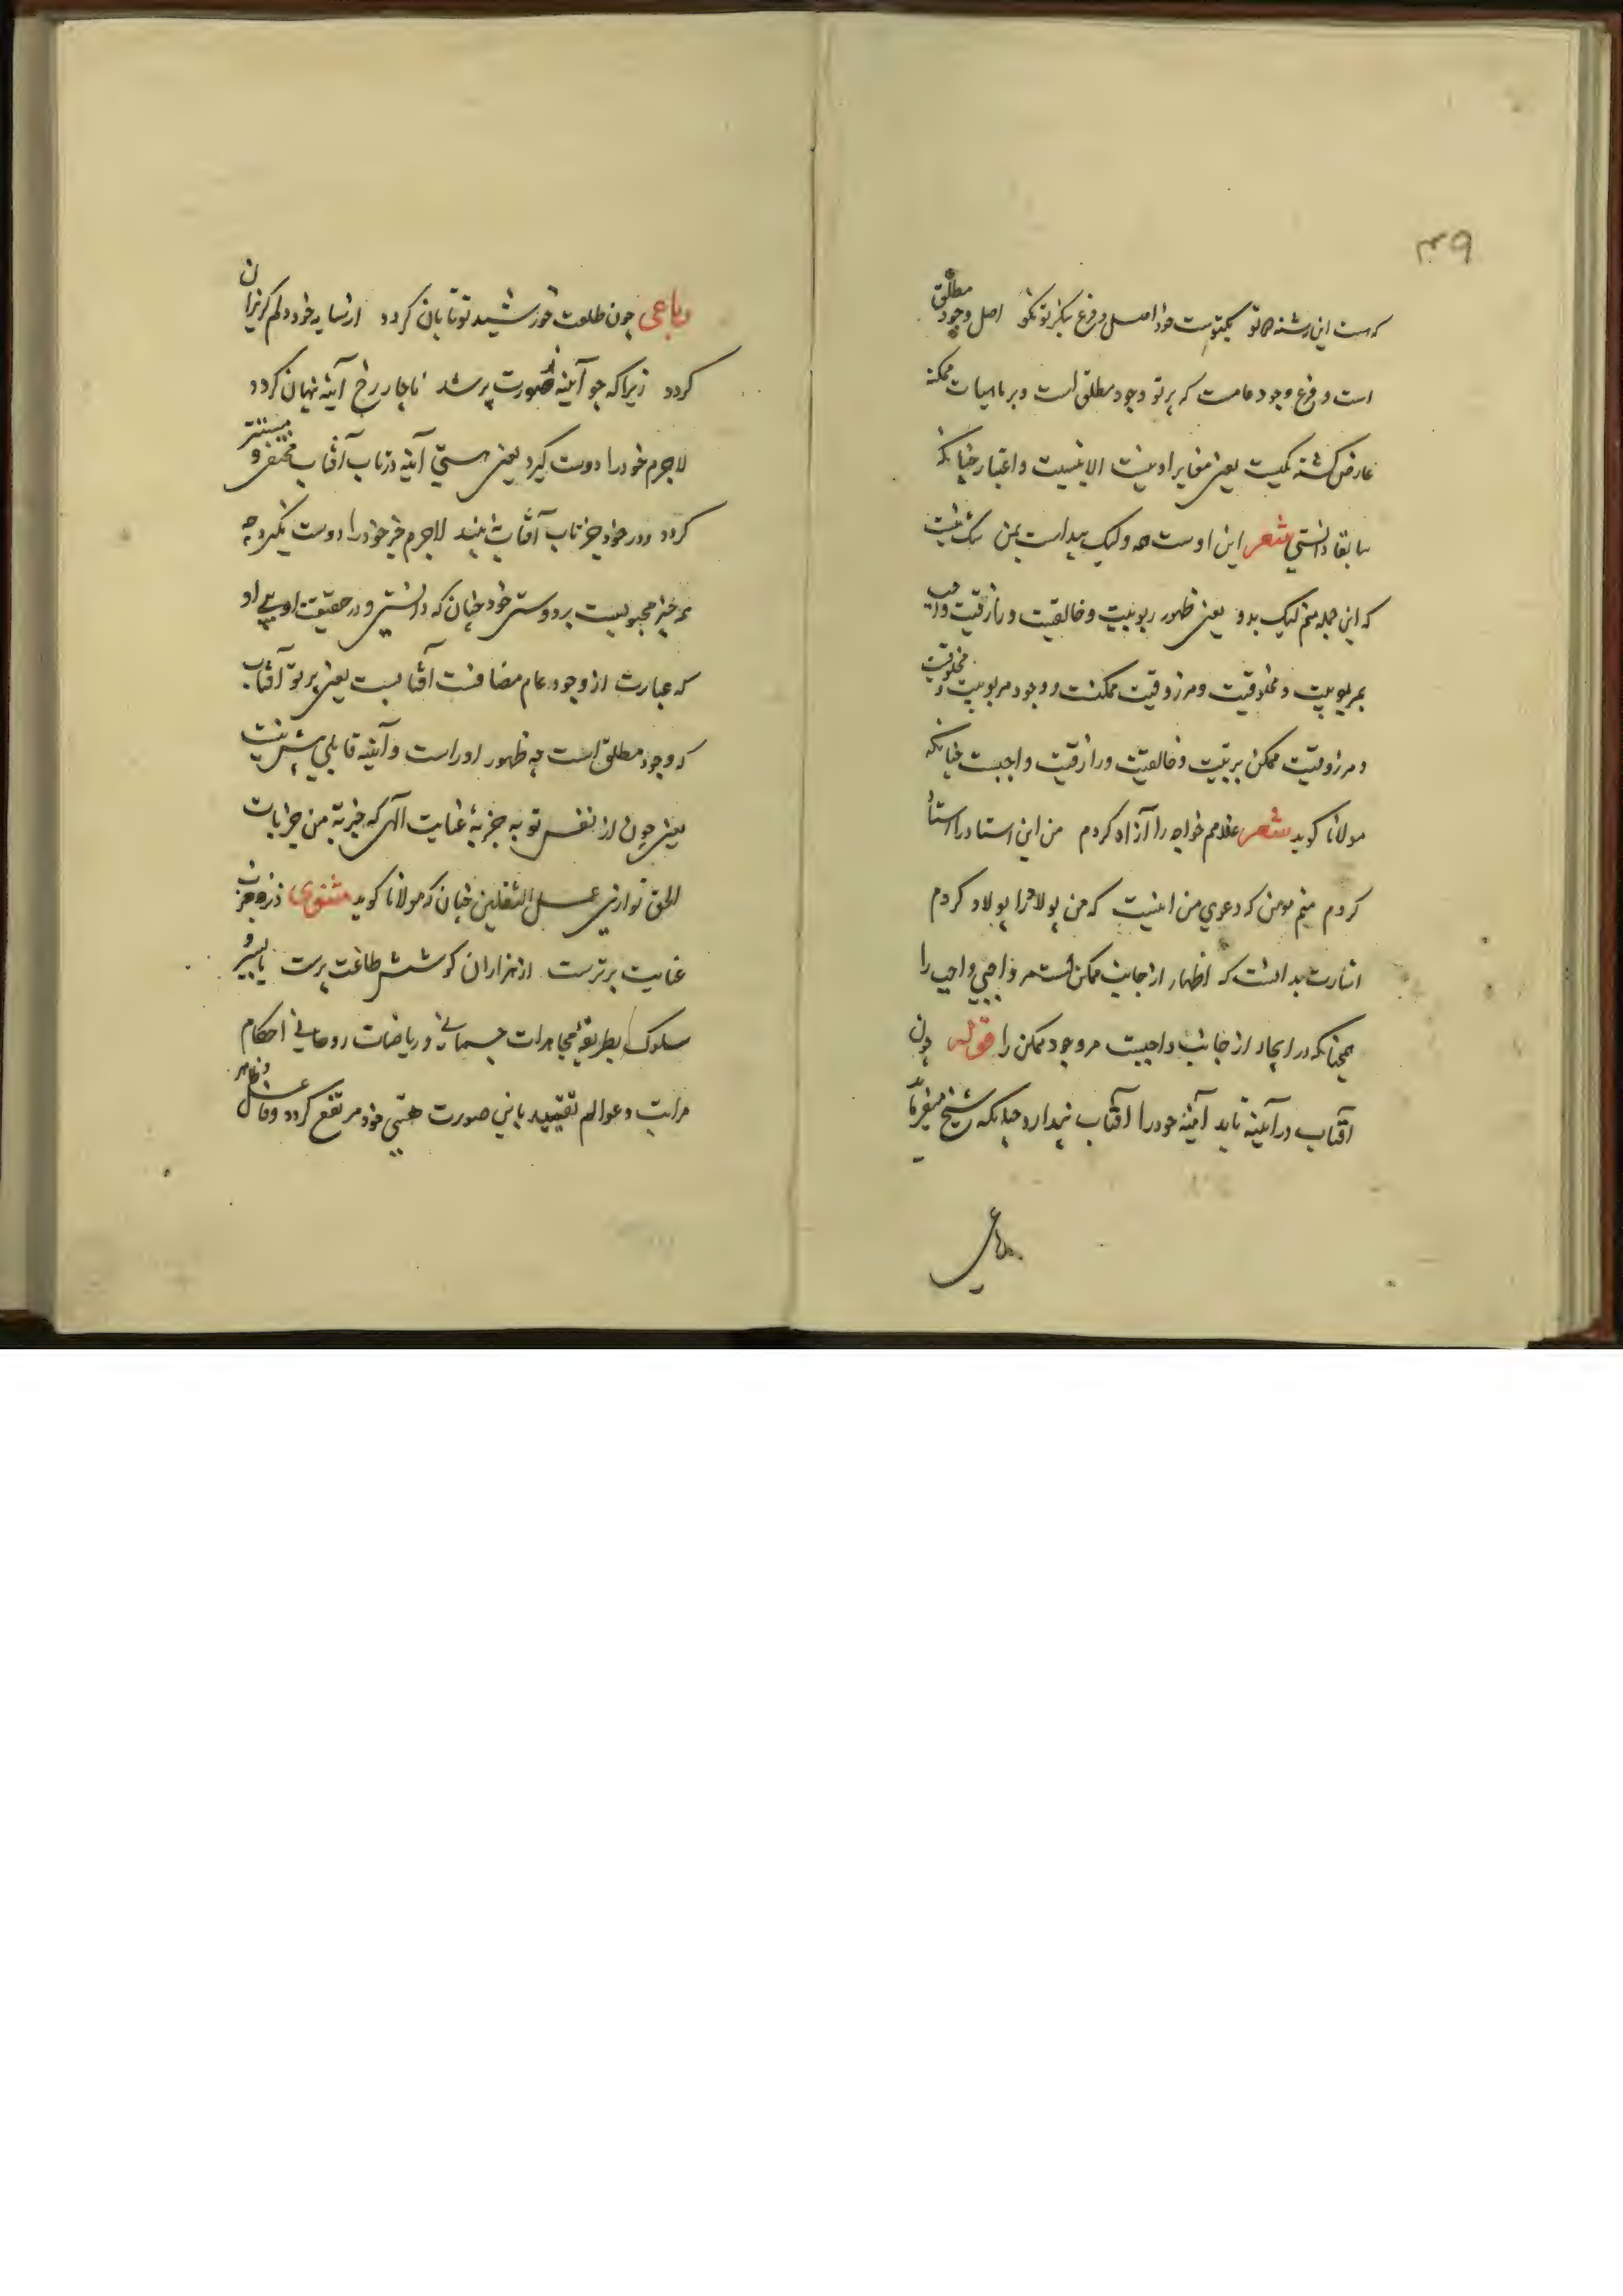 ۳۹
که هست این رشته تو یکتوست خود اصل و فرع بنگر تو نکو اصل وجود مطلق
است و فرع وجود عامست که پرتو وجود مطلق است و بر ماهیات ممکنه
عارض گشته یکیست یعنی مغایر او نیست الا بنسبت و اعتبار چنانکه
سابقا دانستی شعر این اوست ولیک پیداست بمن شک نیست
که این جمله منم لیک بدو یعنی ظهور ربوبیت و خالقیت و رازقیت واجب
بمربوبیت و مخلوقیت و مرزوقیت ممکنست و وجود مربوبیت و مخلوقیت
و مرزوقیت ممکن بربیت و خالقیت و رازقیت واجبست چنانکه
مولانا گوید شعر غلامم خواجه را آزاد کردم من این استاد را استاد
کردم منم مومن که دعوی من اینست که من پولاد را پولاد کردم
اشارت بدانست که اظهار از جانب ممکن است مر واجبی واجب را
همچنانکه در ایجاد از جانب واجبست مر وجود ممکن را قوله چون
آفتاب در آینه تابد آینه خود را آفتاب پندارد چنانکه شیخ میفرماید
رباعی
رباعی چون طلعت خورشید تو تابان گردد از سایه خود دلم گریزان
گردد زیرا که چو آینه ز صورت پر شد ناچار رخ آینه پنهان گردد
لاجرم خود را دوست گیرد یعنی هستی آینه در تاب آفتاب مختفی و مستتر
گردد و در خود جز تاب آفتاب نه بیند لاجرم جز خود را دوست نگیرد چه
همه چیز مجبولست بر دوستی خود چنان که دانستی و در حقیقت اویی او
که عبارت از وجود عام مضافست آفتابست یعنی پرتو آفتاب
که وجود مطلق است چه ظهور او راست و آینه قابلی بیش نیست
یعنی چون از نفس تو به جذبهٔ عنایت الهی که جذبة من جذبات
الحق توازی عمل الثقلین چنان که مولانا گوید مثنوی ذره جذب
عنایت برترست از هزاران کوشش طاعت پرست یا بسیر و
سلوک بطریقهٔ مجاهدات جسمانی و ریاضات روحانی احکام
مراتب و عوالم تقیید باین صورت هستی خود مرتفع گردد و فاعل و ظاهر